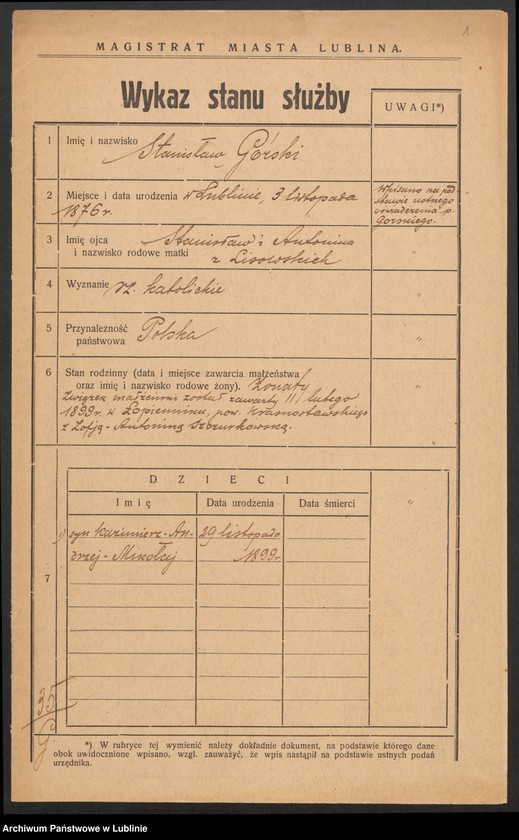 1
MAGISTRAT MIASTA LUBLINA.
Wykaz stanu służby
UWAGI*)
1 Imię i nazwisko Stanisław Górski
2 Miejsce i data urodzenia w Lublinie, 3 listopada
1876 r.
Wpisano na pod-
stawie ustnego
oświadczenia p.
Górskiego.
3 Imię ojca Stanisław i Antonina
i nazwisko rodowe matki z Lisowskich
"
4 Wyznanie rz. katolickie
"
5 Przynależność Polska
państwowa
"
6 Stan rodzinny (data i miejsce zawarcia małżeństwa
oraz imię i nazwisko rodowe żony). Żonaty
Związek małżeński został zawarty 11 lutego
1899 r. w Łopienniku, pow. Krasnostawskiego
z Zofją-Antoniną Szczurkowską.
"
7
DZIECI
Imię Data urodzenia Data śmierci
1) syn Kazimierz-An- 29 listopada
drzej-Mikołaj 1899 r.
"
35
G
*) W rubryce tej wymienić należy dokładnie dokument, na podstawie którego dane
obok uwidocznione wpisano, wzgl. zauważyć, że wpis nastąpił na podstawie ustnych podań
urzędnika.
Archiwum Państwowe w Lublinie